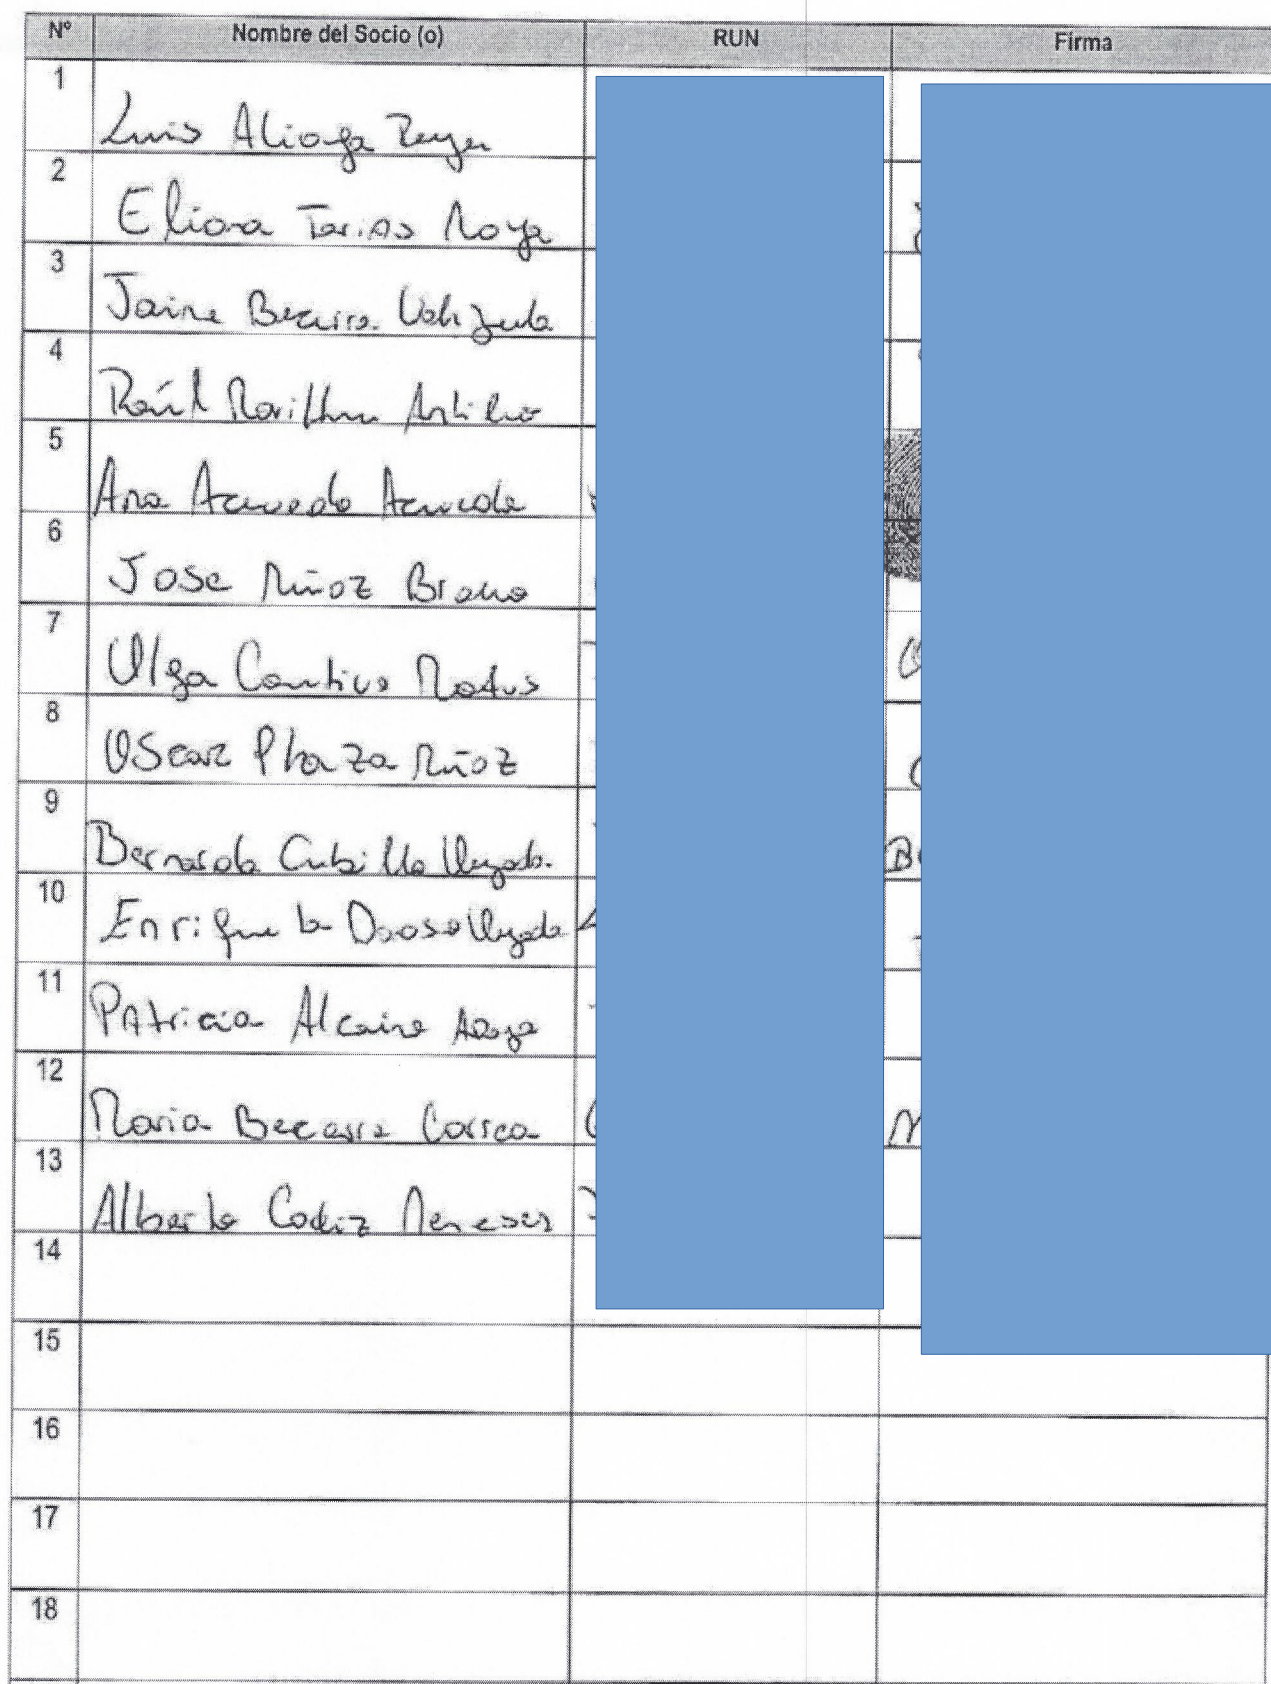 Nº Nombre del Socio (o) RUN Firma
1 Luis Aliaga Reyes
2 Eliana Farias Moya
3 Jaime Becerra Valenzuela
4 Raúl
5 Ana Acevedo Acevedo
6 Jose Muñoz Bravo
7 Olga Cantivo Matus
8 Oscar Plaza Muñoz
9 Bernarda Cubillo
10 Enriqueta Donoso
11 Patricia Alcaino Araya
12 Maria Becerra Correa
13 Alberto Cadiz Meneses
14
15
16
17
18